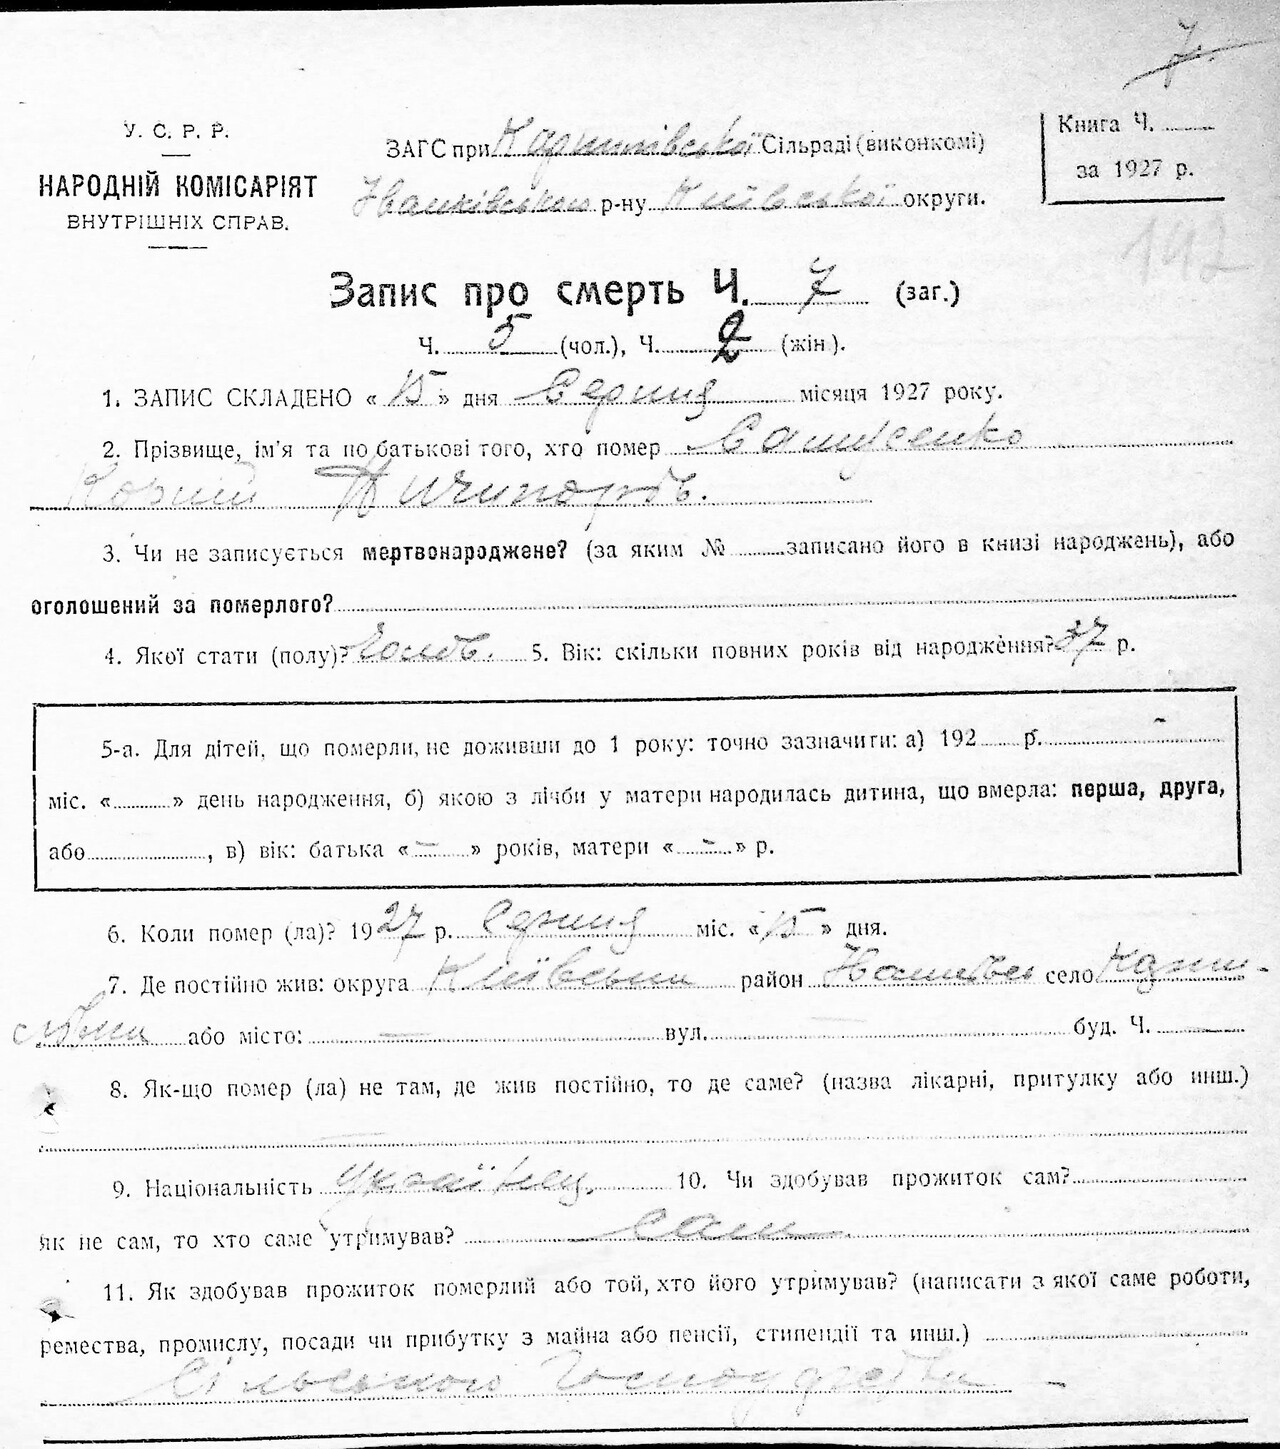 7.
У. С. Р. Р.
НАРОДНІЙ КОМІСАРІЯТ
ВНУТРІШНІХ СПРАВ.
ЗАГС при Сільраді (виконкомі)
р-ну Київської округи.
Книга Ч.
за 1927 р.
142
Запис про смерть Ч. 7 (заг.)
Ч. 5 (чол.), Ч. 2 (жін.).
1. ЗАПИС СКЛАДЕНО « 15 » дня Серпня місяця 1927 року.
2. Прізвище, ім'я та по батькові того, хто помер
Корній Ничипоров.
3. Чи не записується мертвонароджене? (за яким № записано його в книзі народжень), або
оголошений за померлого?
4. Якої стати (полу)? Чолов. 5. Вік: скільки повних років від народження? 37 р.
5-а. Для дітей, що померли, не доживши до 1 року: точно зазначити: а) 192 р.
міс. « » день народження, б) якою з лічби у матери народилась дитина, що вмерла: перша, друга,
або , в) вік: батька « – » років, матери « – » р.
6. Коли помер (ла)? 1927 р. Серпня міс. «15» дня.
7. Де постійно жив: округа Київська район село
або місто: — вул. — буд. Ч. —
8. Як-що помер (ла) не там, де жив постійно, то де саме? (назва лікарні, притулку або инш.)
—
9. Національність Українец. 10. Чи здобував прожиток сам?
як не сам, то хто саме утримував? сам
11. Як здобував прожиток померлий або той, хто його утримував? (написати з якої саме роботи,
ремества, промислу, посади чи прибутку з майна або пенсії, стипендії та инш.)
Сільського Господарства –